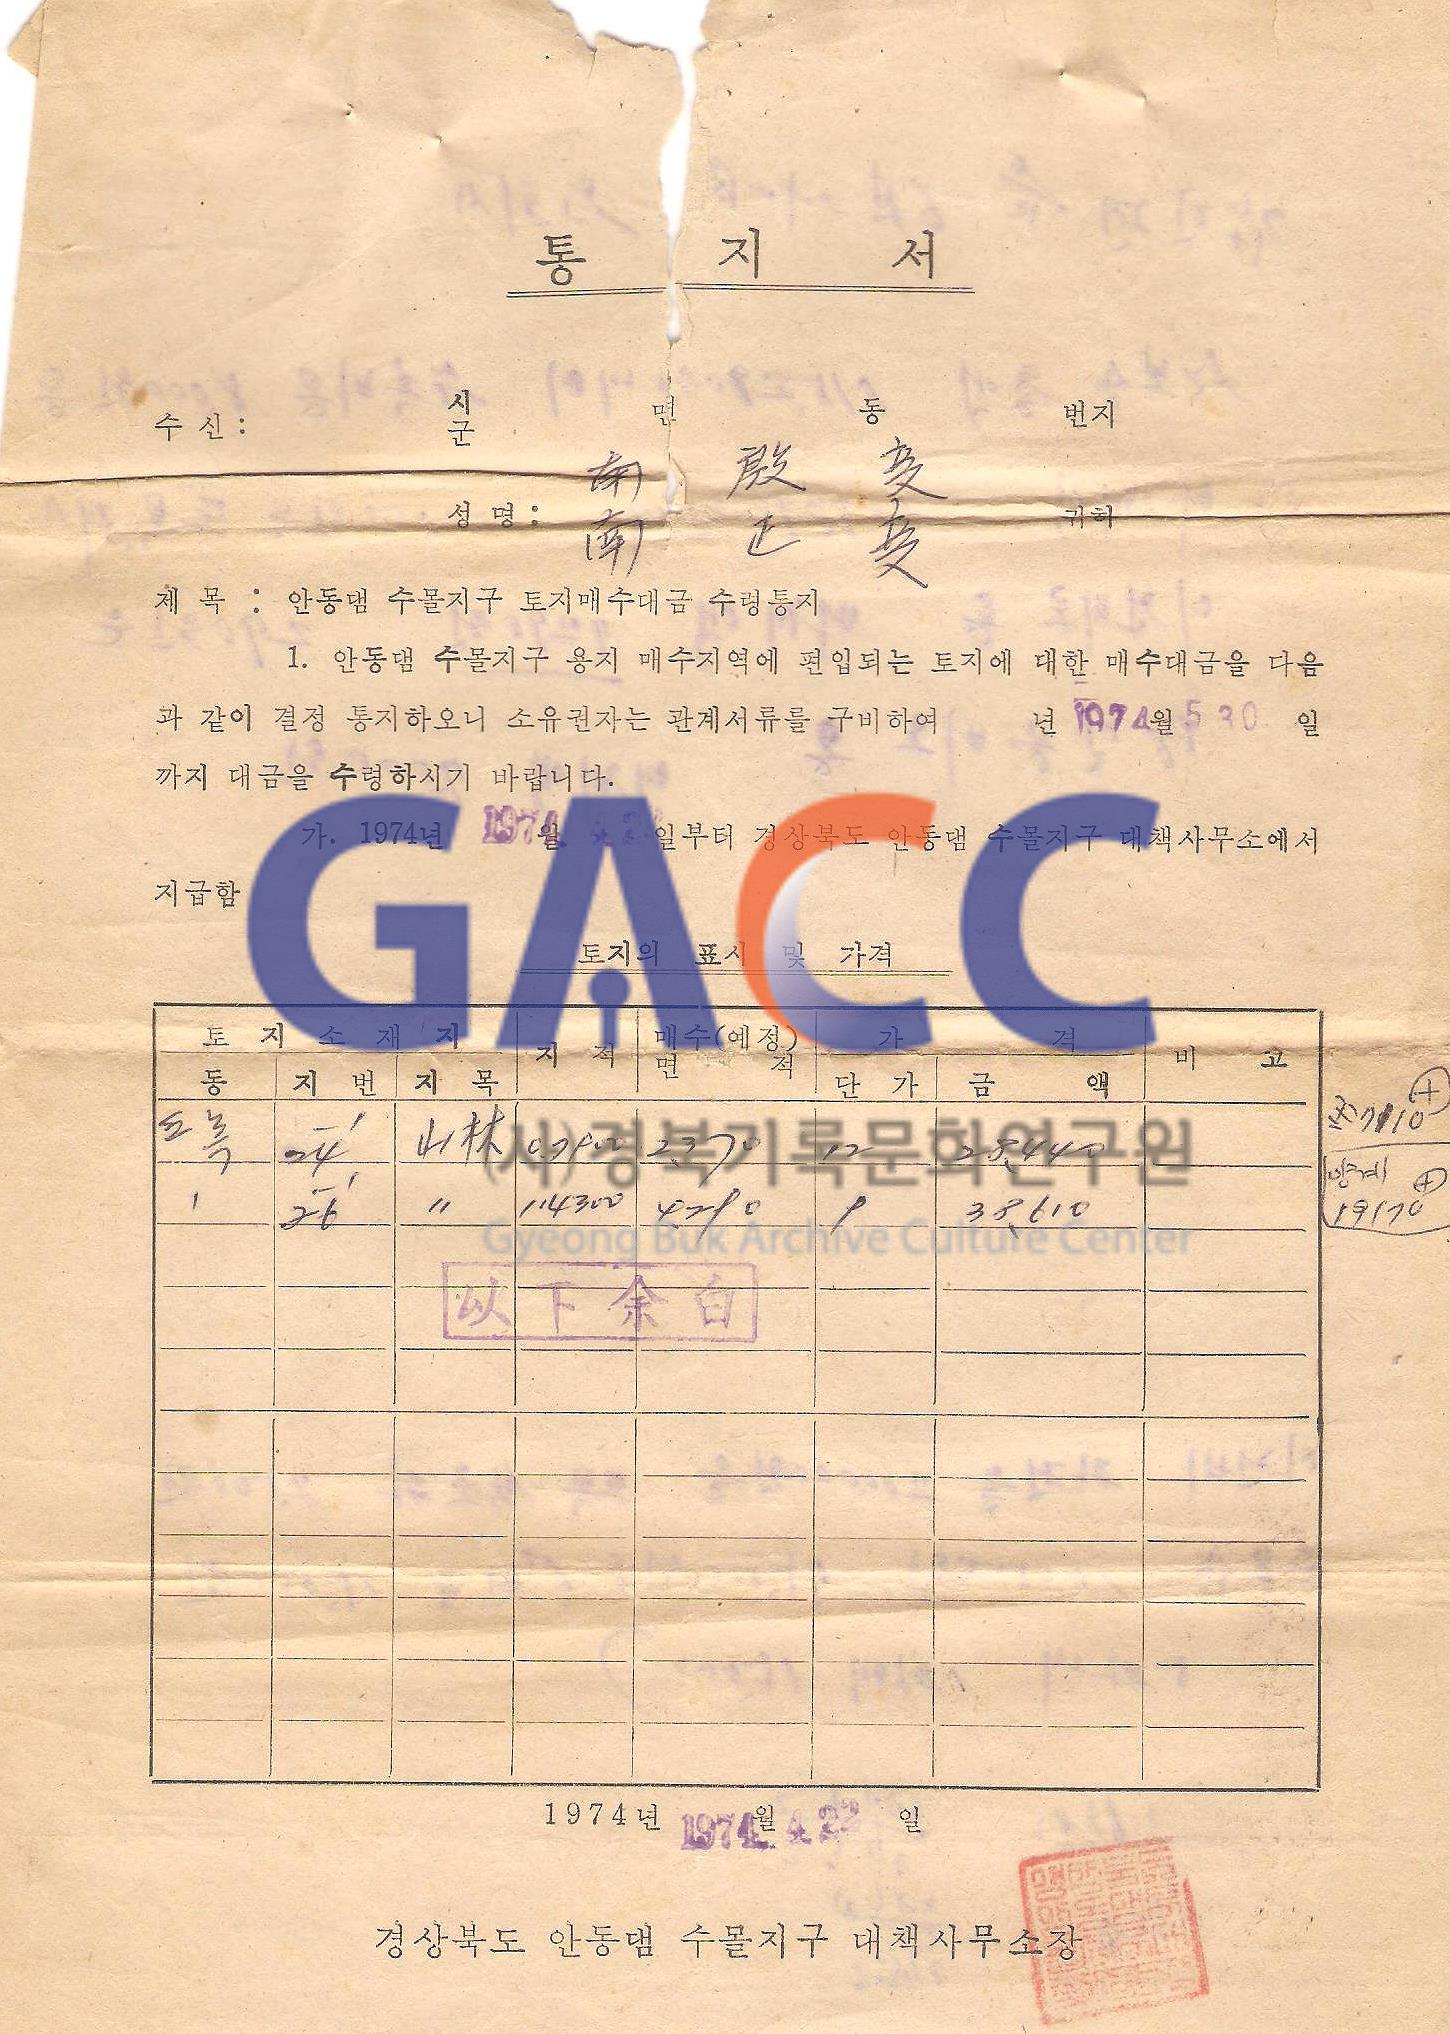 통 지 서
수 신 : 시 군 면 동 번지
南 殷 燮
성 명 : 귀하
南 正 燮
제 목 : 안동댐 수몰지구 토지매수대금 수령통지
1. 안동댐 수몰지구 용지 매수지역에 편입되는 토지에 대한 매수대금을 다음
과 같이 결정 통지하오니 소유권자는 관계서류를 구비하여 년 1974 월 5 30 일
까지 대금을 수령하시기 바랍니다.
가. 1974년 1974 월 4. 22 일부터 경상북도 안동댐 수몰지구 대책사무소에서
지급함
GACC
토지의 표시 및 가격
토 지 소 재 지 지 적 매수(예정) 면 적 가 격 비 고
동 지 번 지 목 단 가 금 액
도목 24-1 山林 2370 12 28,440
26-1 〃 114300 4290 9 38,610
(사)경북기록문화연구원
Gyeong Buk Archive Culture Center
19170
以下余白
1974년 1974. 월 4. 22 일
경상북도 안동댐 수몰지구 대책사무소장